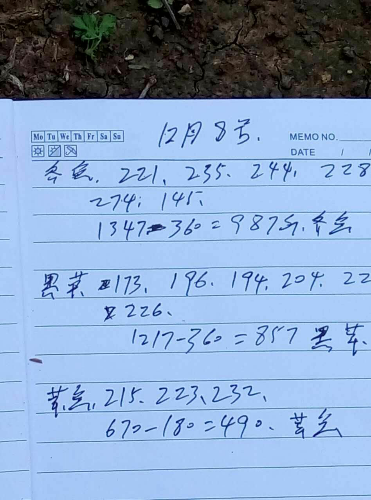 Mo Tu We Th Fr Sa Su
12月8号.
MEMO NO.
DATE / /
221、235、244、228
274、145、
1347-360=987
173、196、194、204、22
226、
1217-360=857
215、223、232、
670-180=490、